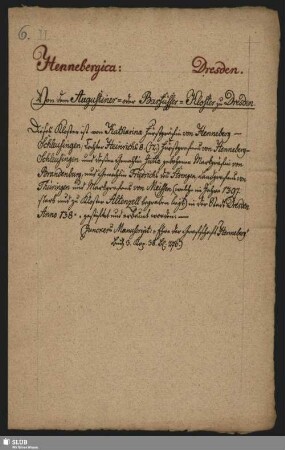 6.
Hennebergica: Dresden.
Von dem Augustiner- oder Barfüsser-Kloster zu Dresden
Dieses Kloster ist von Katharina Fürstgräfin von Henneberg-
Schleusingen, Tochter Heinrichs 8. (12) Fürstgrafens von Henneberg-
Schleusingen und dessen Gemahlin Jutta, gebohrne Markgräfin von
Brandenburg, und Gemahlin Friedrichs des Strengen, Landgrafens von
Thüringen und Markgrafens von Meissen (welche im Jahre 1397.
starb und zu Kloster Altenzell begraben liegt) in der Stadt Dresden
Anno 138 gestiftet und erbauet worden.
Manuscript. der Grafschaft Henneberg
SLUB
Wir führen Wissen.